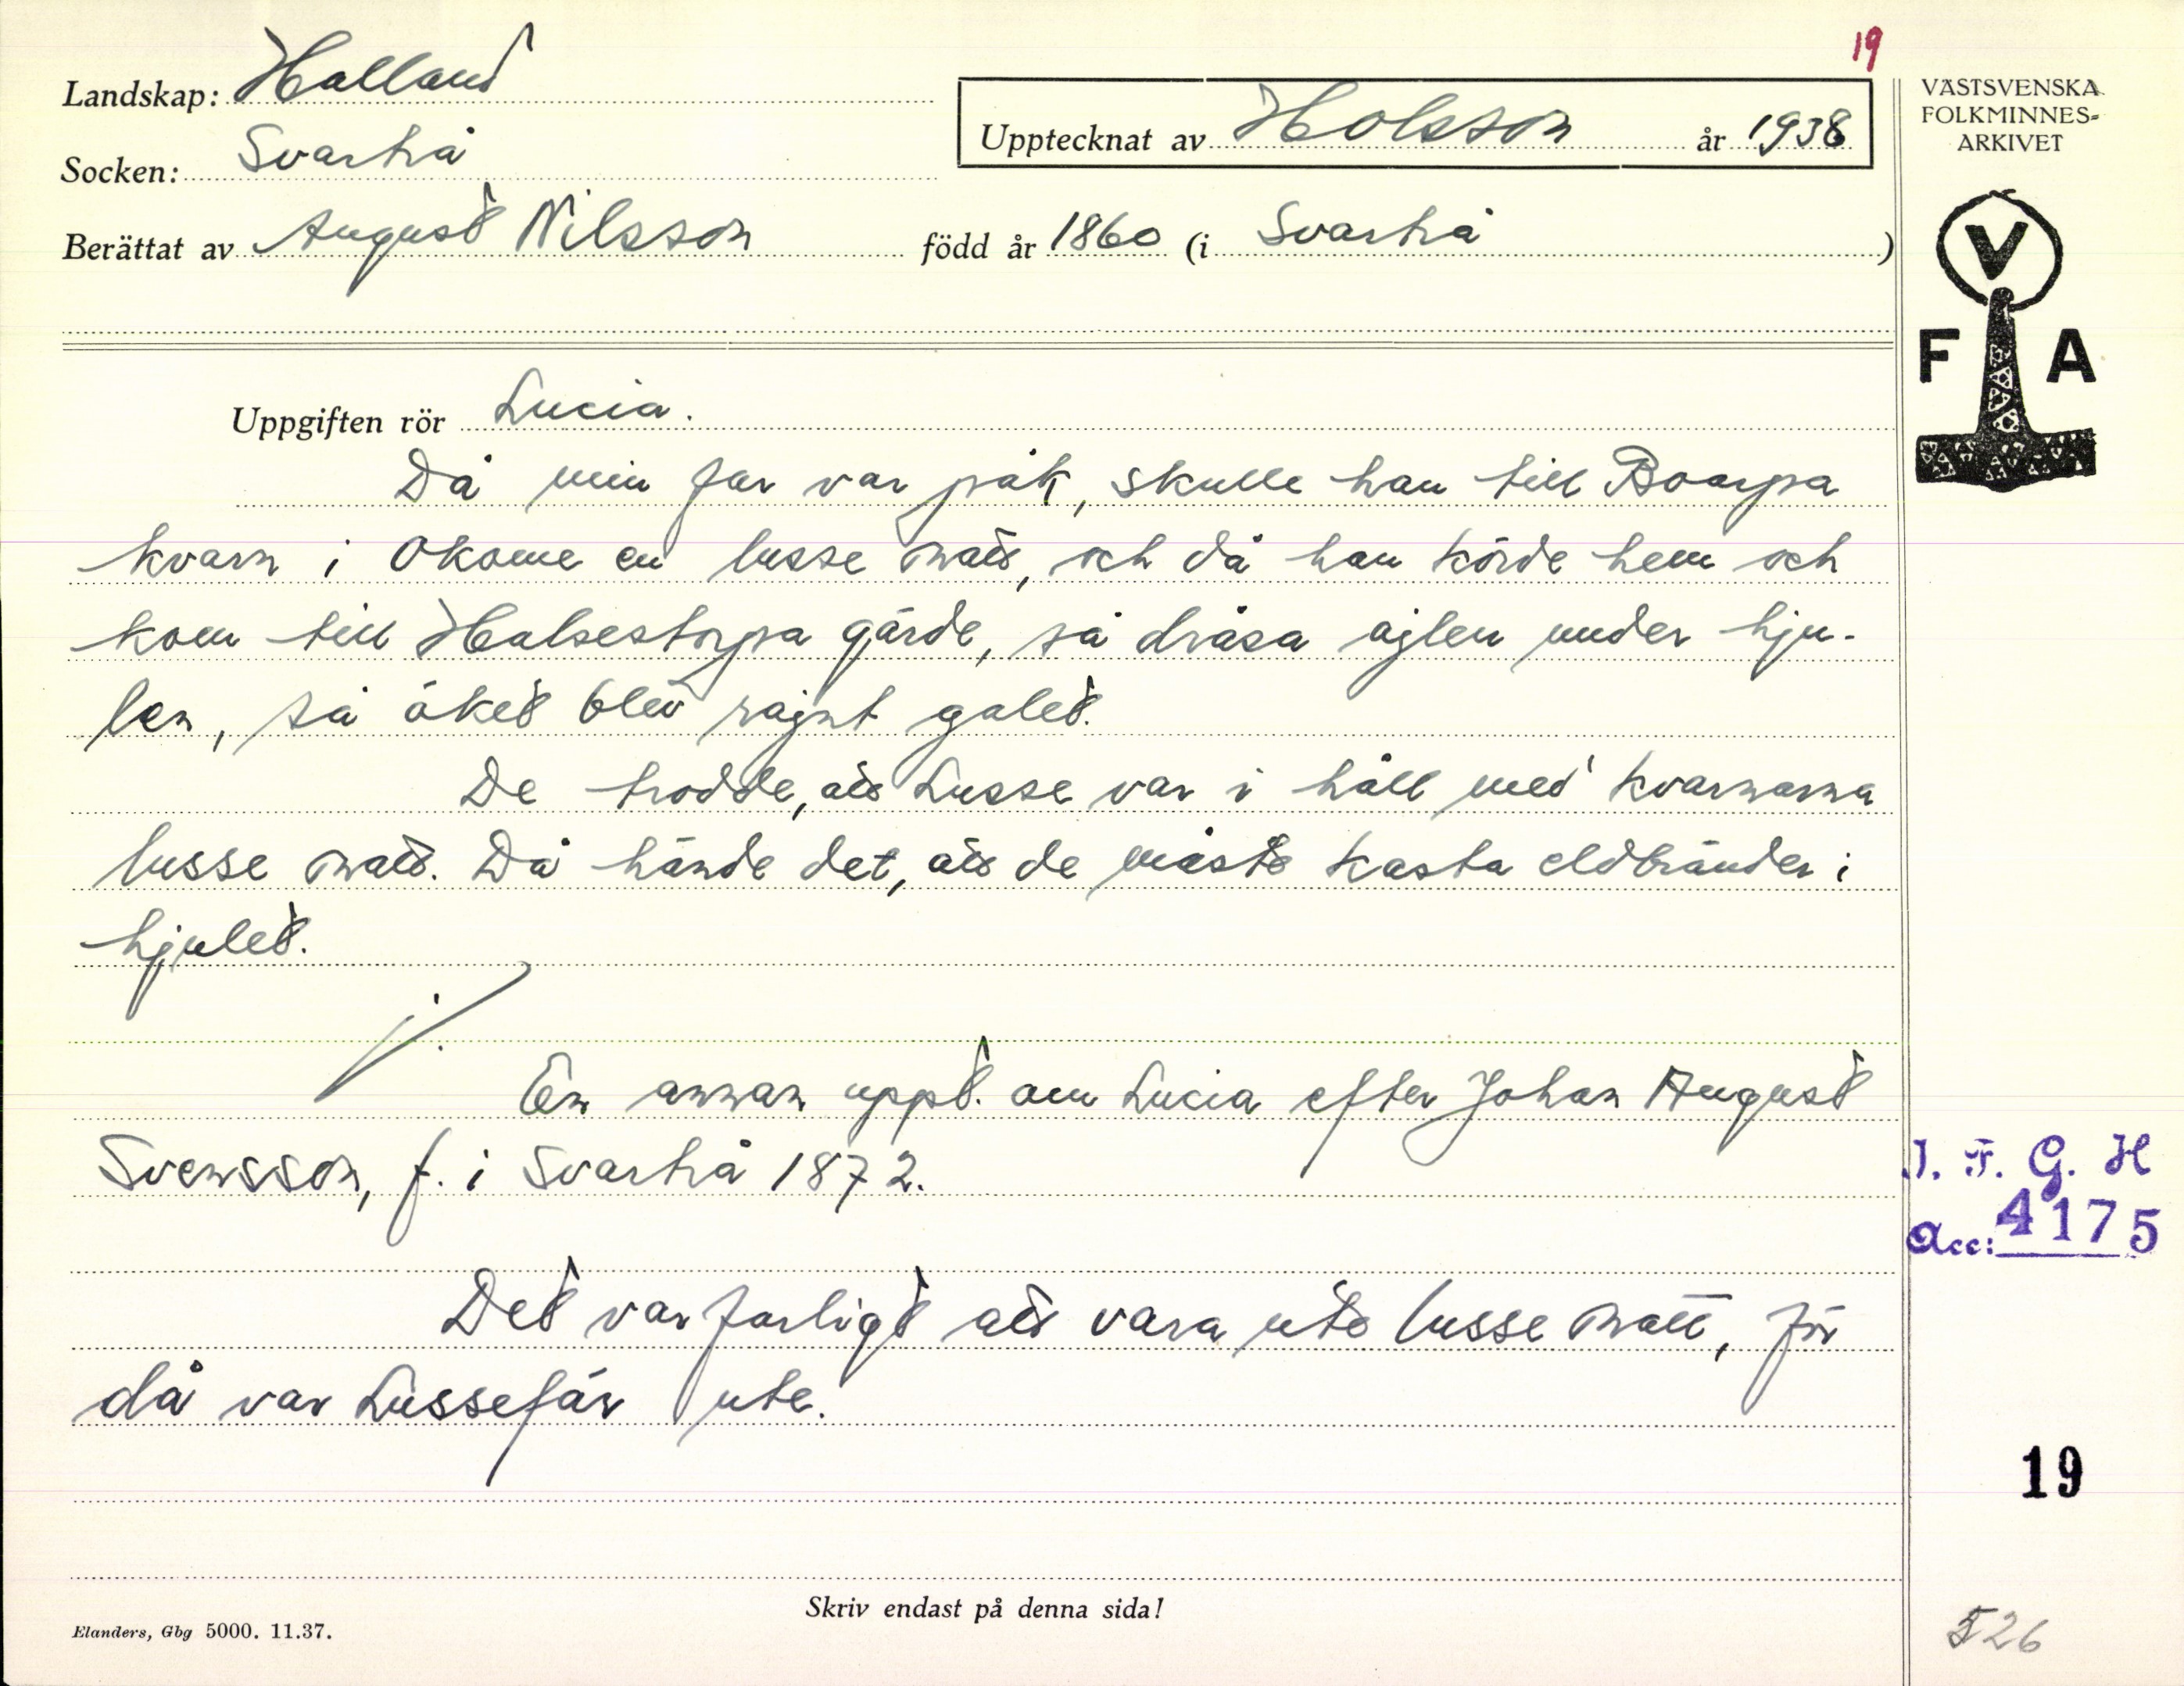 19
Landskap: Halland
Socken: Svartrå
Upptecknat av Holsson år 1938
Berättat av August Nilsson född år 1860 (i Svartrå)
VÄSTSVENSKA
FOLKMINNES-
ARKIVET
V
F A
Uppgiften rör Lucia.
Då min far var påk, skulle han till Boarpa
kvarn i Okome en lusse natt, och då han körde hem och
kom till Halsestorpa gärde, så dråsa ajlen under hju-
len, så öket blev rajnt galet.
De trodde, att Lusse var i håll med kvarnarna
lusse natt. Då hände det, att de måste kasta eldbränder i
hjulet.
En annan uppt. om Lucia efter Johan August
Svensson, f. i Svartrå 1872.
Det var farligt att vara ute lusse natt, för
då var Lussefär ute.
I. F. G. H
Acc: 4175
19
Skriv endast på denna sida!
Elanders, Gbg 5000. 11.37.
526